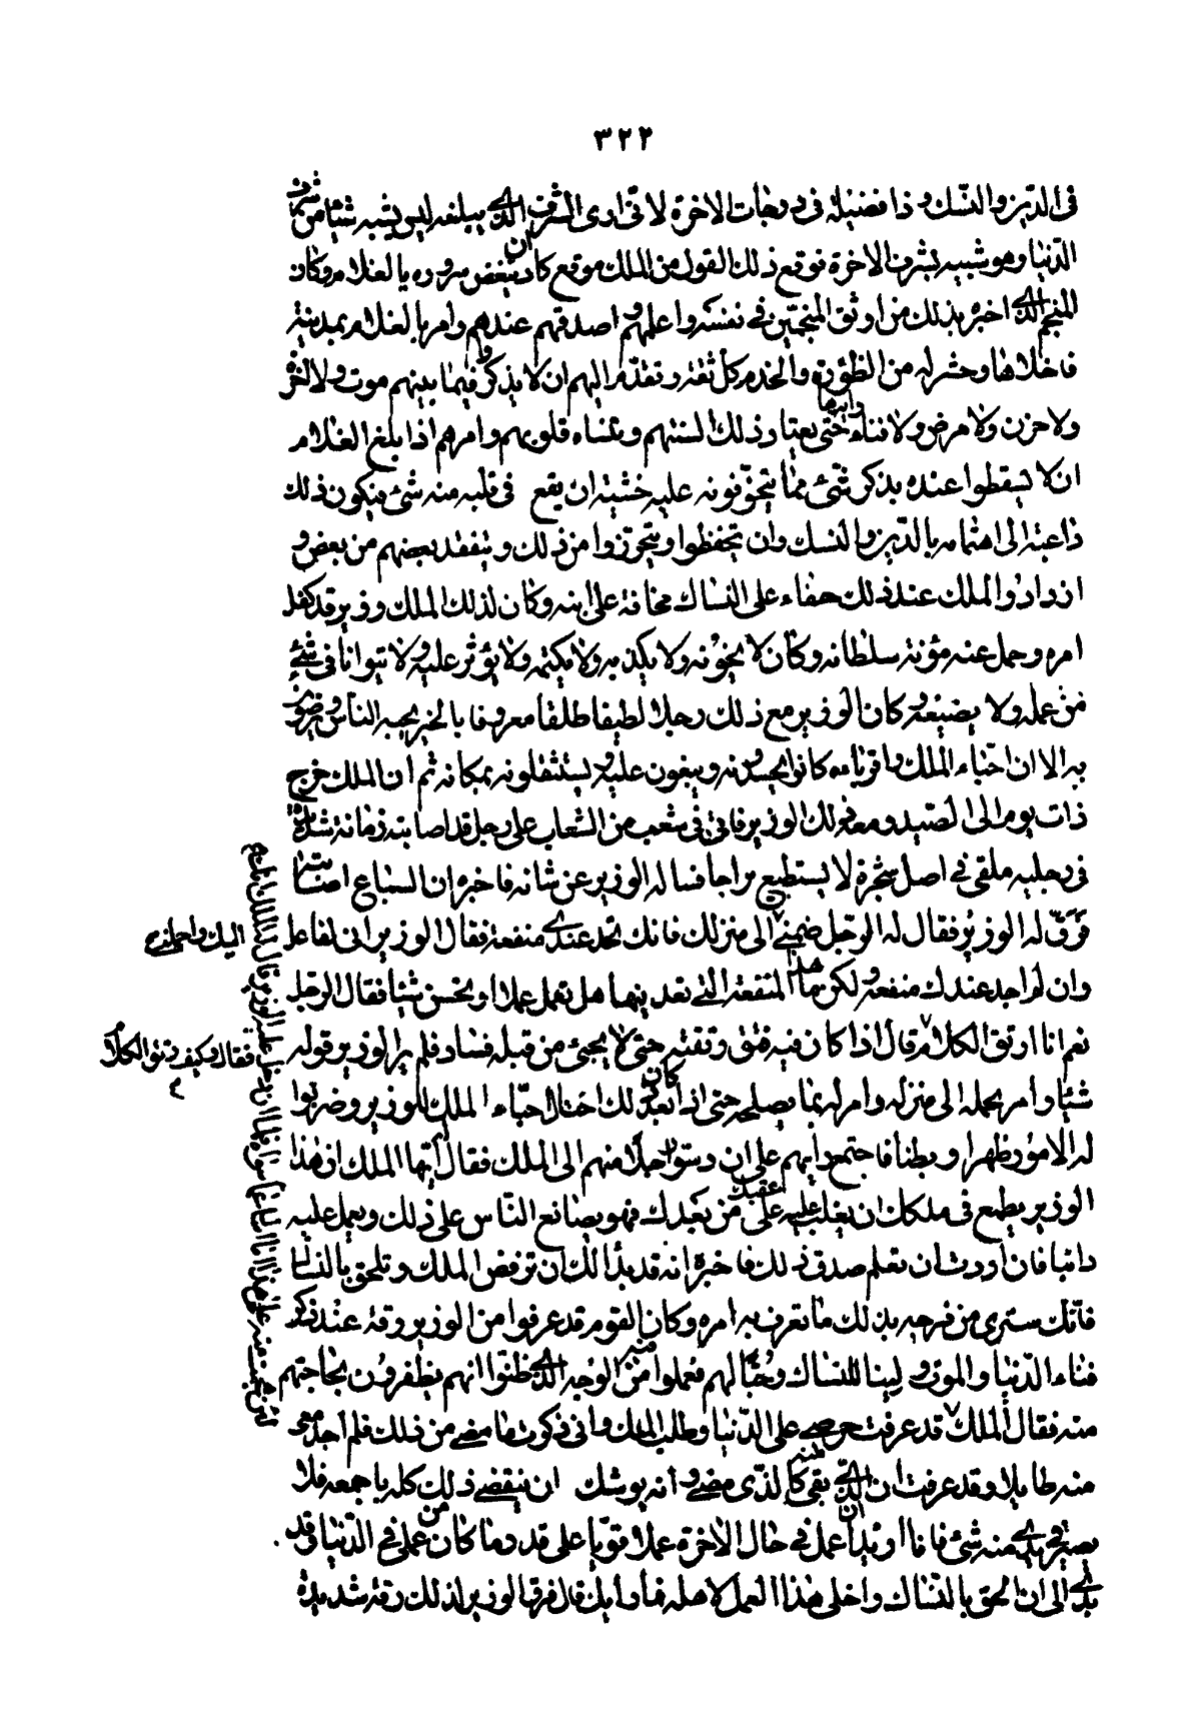 ٣٢٢
فى الدّين والنّسك وذا فضيلة فى درجات الاخرة لانّى ارى الشرف الذى يبلغه ليس يشبه شيئا من شرف
الدّنيا وهو شبيه بشرف الاخرة فوقع ذلك القول من الملك موقع كاد ان ينغص سروره بالغلام وكان
المنجم الذى اخبره بذلك من اوثق المنجّمين فى نفسه واعلمهم واصدقهم عنده وامر بالغلام بمدينة
فاخلاها وحشر له من الظؤرة والخدم كل ثقة وتقدّم اليهم ان لا يذكروا فيما بينهم موت ولا اخرة
ولا حزن ولا مرض ولا فناء حتى يعتاد ذلك السنتهم وتنساه قلوبهم وامرهم اذا بلغ الغلام
ان لا ينطقوا عنده بذكر شئ ممّا يتخوّفونه عليه خشية ان يقع فى قلبه منه شئ فيكون ذلك
داعية الى اهتمامه بالدّين والنسك وان يتحفظوا ويتحرّزوا من ذلك ويتفقد بعضهم من بعض و
ازداد الملك عند ذلك حنقا على النساك مخافة على ابنه وكان لذلك الملك وزير قد كفل
امره وحمل عنه مؤنة سلطانه وكان لا يخونه ولا يكذبه ولا يكتمه ولا يؤثر عليه ولا يتوانا فى شئ
من عمله ولا يضيعه وكان الوزير مع ذلك رجلا لطيفا طلقا معروفا بالخير يحبه الناس ويرضون
به الا ان احبّاء الملك واقرباءه كانوا يحسدونه ويبغون عليه ويستثقلونه بمكانه ثم ان الملك خرج
ذات يوم الى الصّيد ومعه ذلك الوزير فاتى فى شعب من الشعاب على رجل قد اصابته زمانة شديدة
فى رجليه ملقى فى اصل شجرة لا يستطيع براحا فساله الوزير عن شانه فاخبره ان السّباع اصابته
فرقّ له الوزير فقال له الرّجل ضمّنى الى منزلك فانك تجد عندى منفعة فقال الوزير انى لفاعل
اليك واحملنى
وان لم اجد عندك منفعة ولكن ما هذا المنفعة التى تعدنيها هل تعمل عملا او تحسن شيئا فقال الرّجل
نعم انا ارتق الكلام قال اذا كان فيه فتق رتقته حتى لا يجئ من قبله فساد فلم ير الوزير قوله
فقال وكيف ترتق الكلام
شيئا وامر بحمله الى منزله وامر له بما يصلحه حتى اذا كان بعد ذلك احتال احبّاء الملك للوزير وضربوا
له الامور ظهرا وبطنا فاجتمع رايهم على ان دسّوا رجلا منهم الى الملك فقال ايّها الملك ان هذا
الوزير يطمع فى ملكك ان يغلب عليه على عقبك من بعدك فهو يصانع النّاس على ذلك ويعمل عليه
دائبا فان اردت ان تعلم صدق ذلك فاخبره انه قد بدا لك ان ترفض الملك وتلحق بالنساك
فانّك سترى من فرحه بذلك ما تعرف به امره وكان القوم قد عرفوا من الوزير رقة عند ذكر
فناء الدّنيا والموت ولينا للنساك وحبّا لهم فعملوا فيه من الوجه الذى ظنّوا انهم يظفرون بحاجتهم
منه فقال الملك قد عرفت حرصى على الدّنيا وطلب الملك وانى ذكرت ما مضى من ذلك فلم اجد معى
منه طايلا وقد عرفت ان الذى بقى منه كالذى مضى وانه يوشك ان ينقضى ذلك كله باجمعه فلا
يصير فى يدى منه شئ فانا اريد ان اعمل فى حال الاخرة عملا قويّا على قدر ما كان من عملى فى الدّنيا وقد
بدا لى ان الحق بالنسّاك واخلى هذا العمل لاهله فما رأيك قال فرقّ الوزير لذلك رقة شديدة